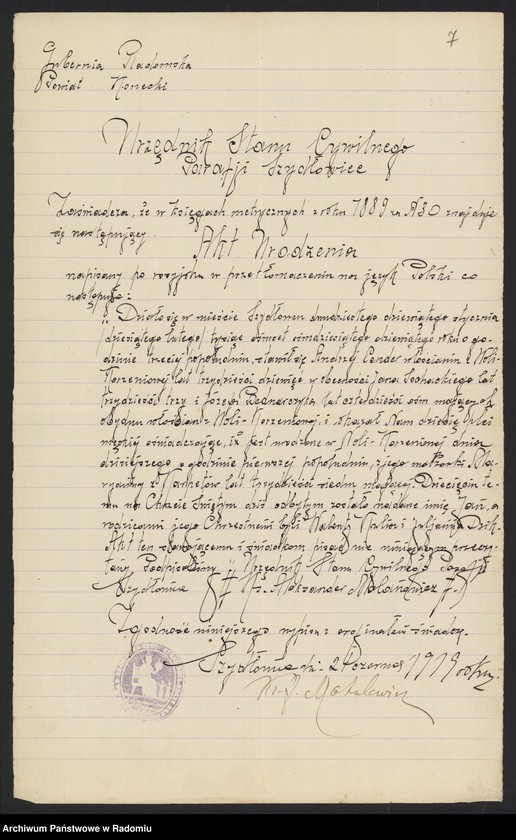 7
Gubernia Radomska
Powiat Konecki
Urzędnik Stanu Cywilnego
Parafji Szydłowiec
Zaświadcza, że w księgach metrycznych z roku 1889 za № 30 znajduje
się następujący
Akt Urodzenia
napisany po rosyjsku w przetłomaczeniu na język Polski co
następuje:
„Działo się w mieście Szydłowcu dwudziestego dziewiątego stycznia
/dziesiątego lutego/ tysiąc ośmset ośmdziesiątego dziewiątego roku o go-
dzinie trzeciej popołudniu, stawił się Andrzej Cender włościanin z Woli-
Korzeniowej lat trzydzieści dziewięć w obecności Jana Sochackiego lat
trzydzieści trzy i Józefa Bednarczyka lat czterdzieści ośm mających
obydwu włościan z Woli-Korzeniowej, i okazał Nam dziecię płci
męzkiej oświadczając, iż jest urodzone w Woli-Korzeniowej dnia
dzisiejszego o godzinie pierwszej popołudniu, z jego małżonki Ma-
ryanny z lat trzydzieści siedm mającej. Dziecięciu te-
mu na Chrzcie Świętym dziś odbytym zostało nadane imię Jan, a
rodzicami jego Chrzestnemi byli Walenty i Juljanna
Akt ten stawającemu i świadkom pisać nie umiejącym przeczy-
tany Podpisaliśmy Urzędnik Stanu Cywilnego Parafji
Szydłowiec Ks. Aleksander
Zgodność niniejszego wypisu z oryginałem świadczy.
Szydłowiec dn. 24 czerwca 1919 roku.
Archiwum Państwowe w Radomiu